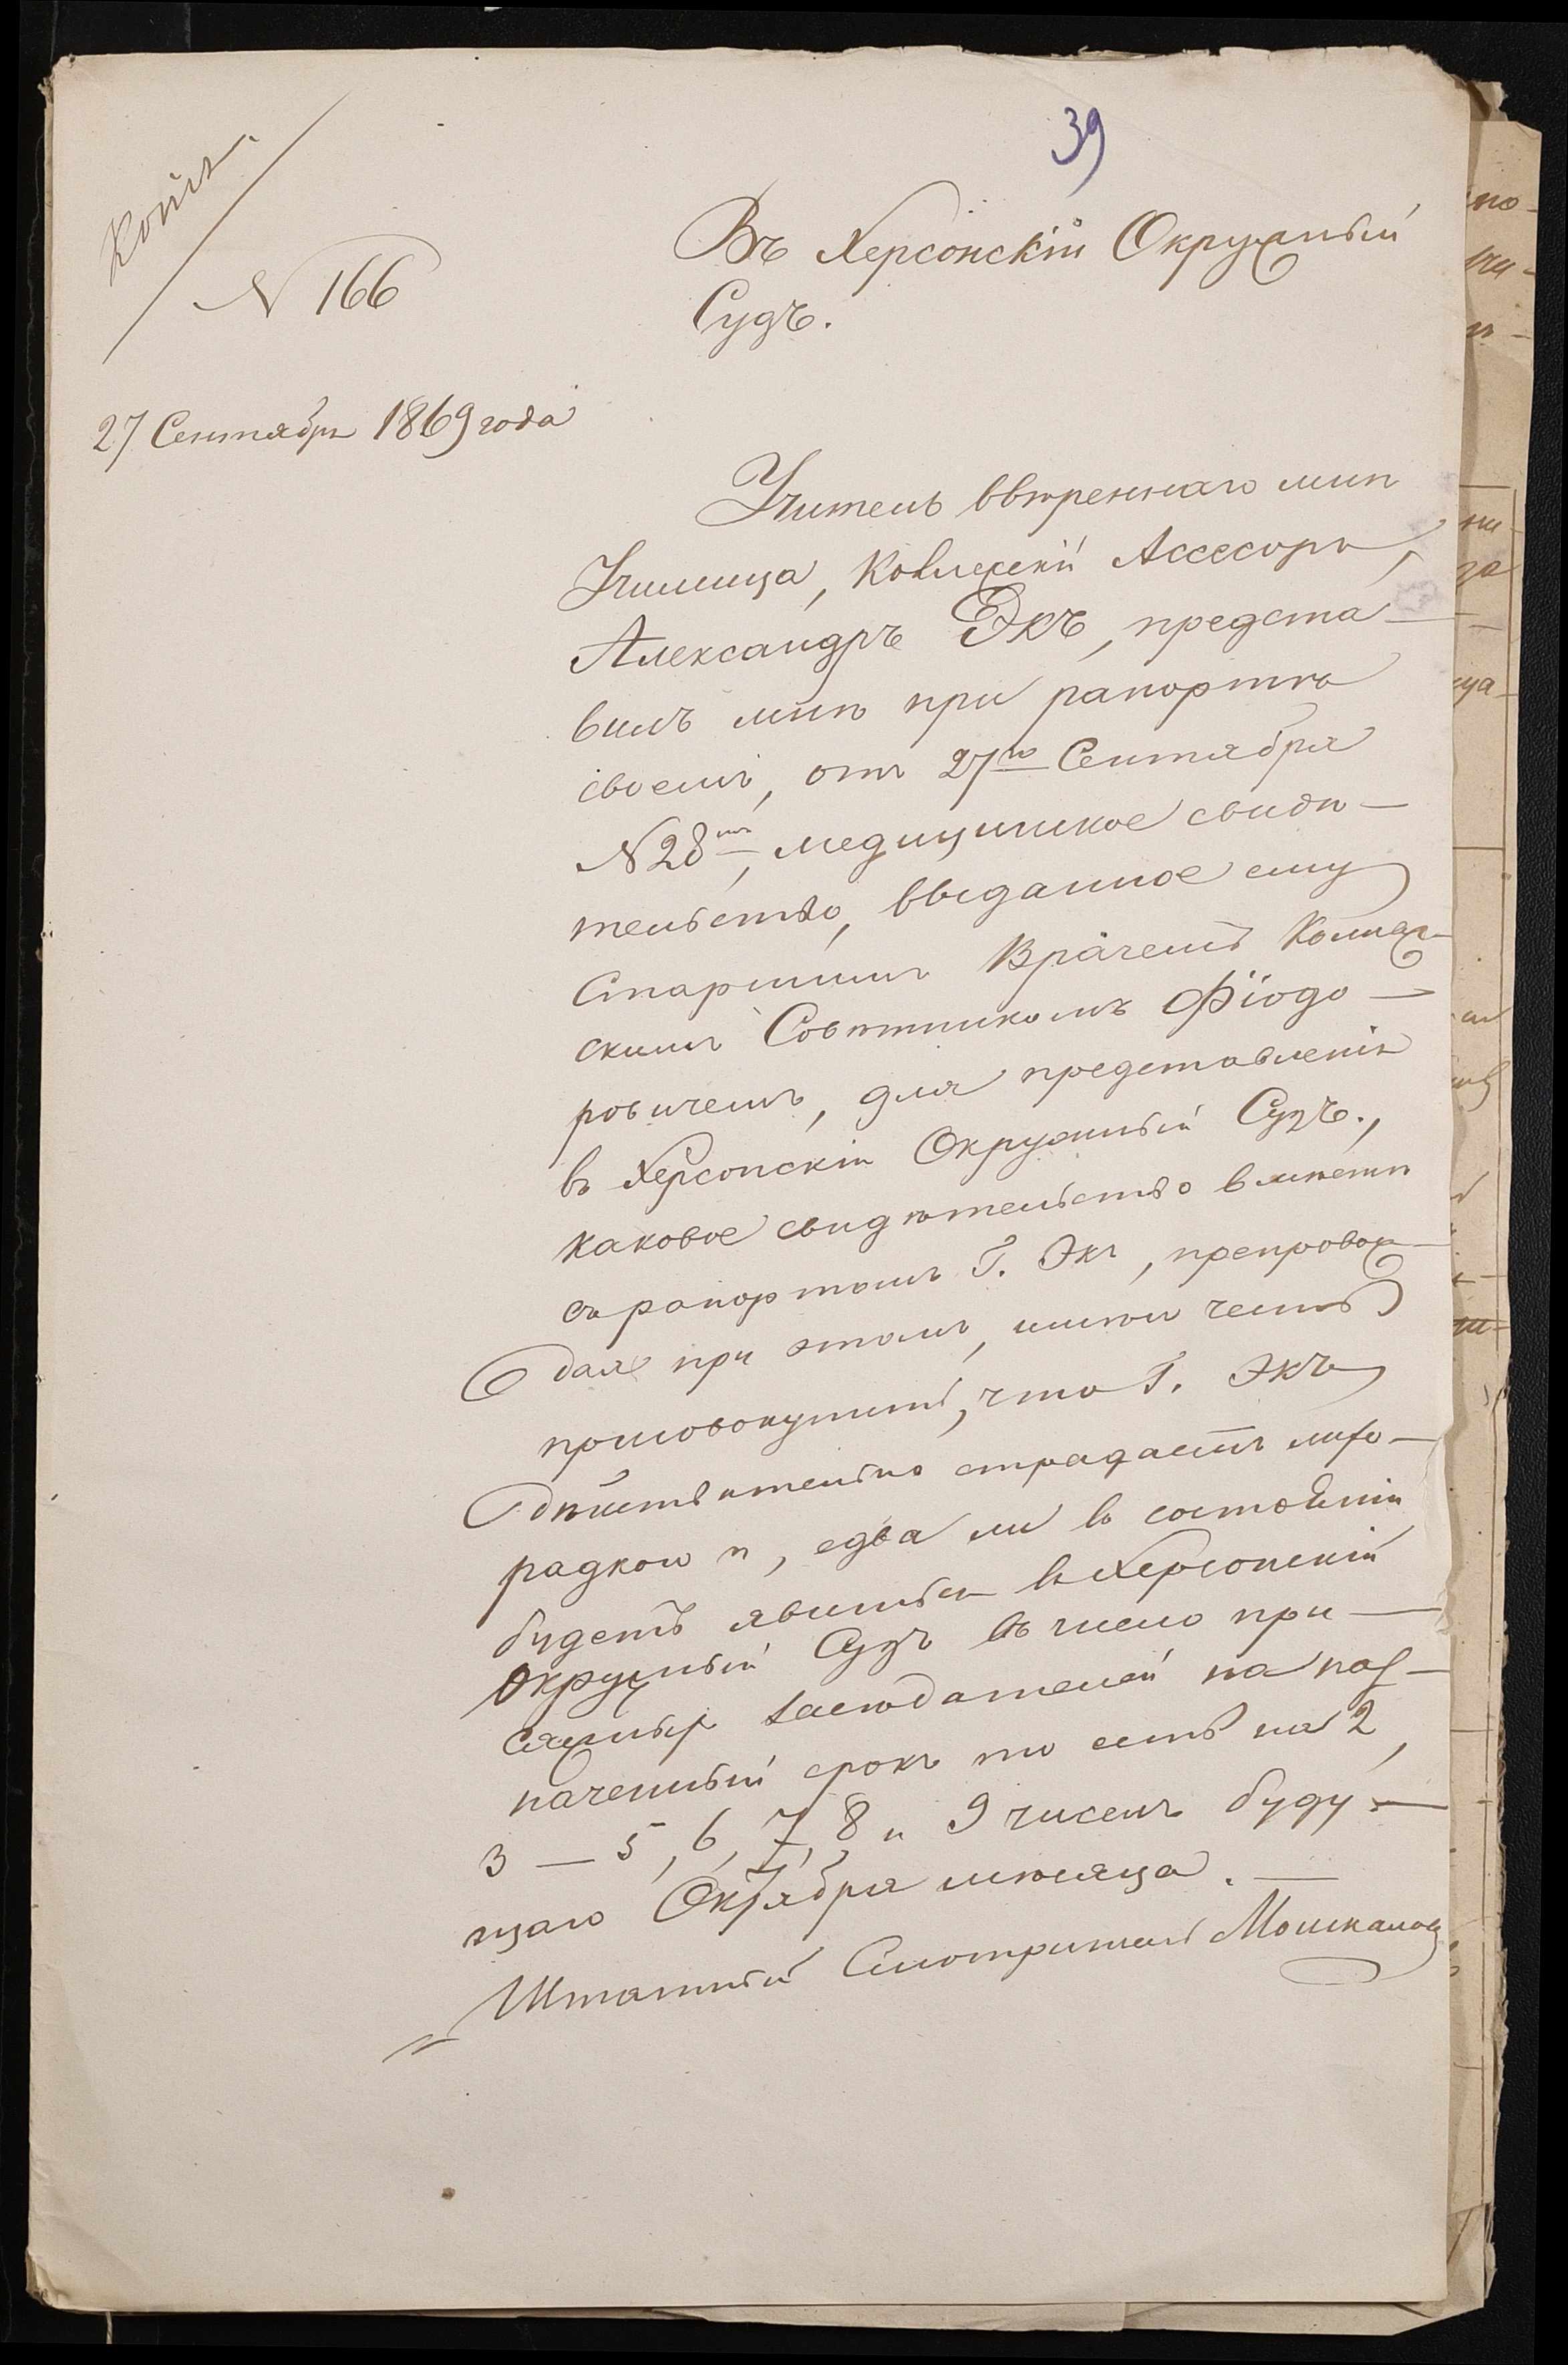 39
Копія
N 166
Въ Херсонскій Окружный
Судъ.
27 Сентября 1869 года
Учитель ввѣреннаго мнѣ
Училища, Коллежскій Ассесоръ,
Александръ Экъ, предста—
вилъ мнѣ при рапортѣ
своемъ, отъ 27го Сентября
N 28мъ, медицинское свидѣ—
тельство, выданное ему
Старшимъ Врачемъ Коллеж-
скимъ Совѣтникомъ Фіодо—
ровичемъ, для представленія
въ Херсонскій Окружный Судъ.,
каковое свидѣтельство вмѣстѣ
съ рапортомъ Г. Экъ, препровож—
дая при этомъ, имѣю честь
присовокупить, что Г. Экъ
дѣйствительно страдаетъ лихо—
радкою и, едва ли въ состояніи
будетъ явиться въ Херсонскій
Окружный Судъ въ число при—
сяжныхъ засѣдателей на наз—
наченный срокъ то есть на 2,
3 — 5, 6, 7, 8 и 9 чиселъ буду—
щаго Октября мѣсяца. —
Штатный Смотритель